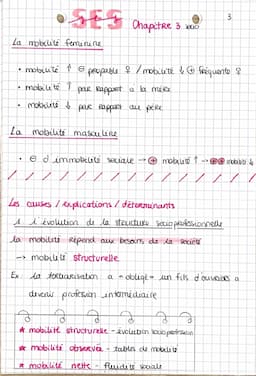 3
SES Chapitre 3
La mobilité féminine
• mobilité ↑ ⊖ peuplé ♀ / mobilité ↓ ⊕ fréquente ♀
• mobilité ↑ par rapport à la mère
• mobilité ↓ par rapport au père
La mobilité masculine
• ⊖ d'immobilité sociale → ⊕ mobilité ↑ → ⊕⊕ mobilité ↓
Les causes / explications / déterminants
1. L'évolution de la structure socioprofessionnelle
la mobilité répond aux besoins de la société
→ mobilité structurelle
Ex la tertiarisation a « obligé » un fils d'ouvriers a
devenir profession intermédiaire
* mobilité structurelle - évolution socioprofession
* mobilité observée - tables de mobilité
* mobilité nette - fluidité sociale